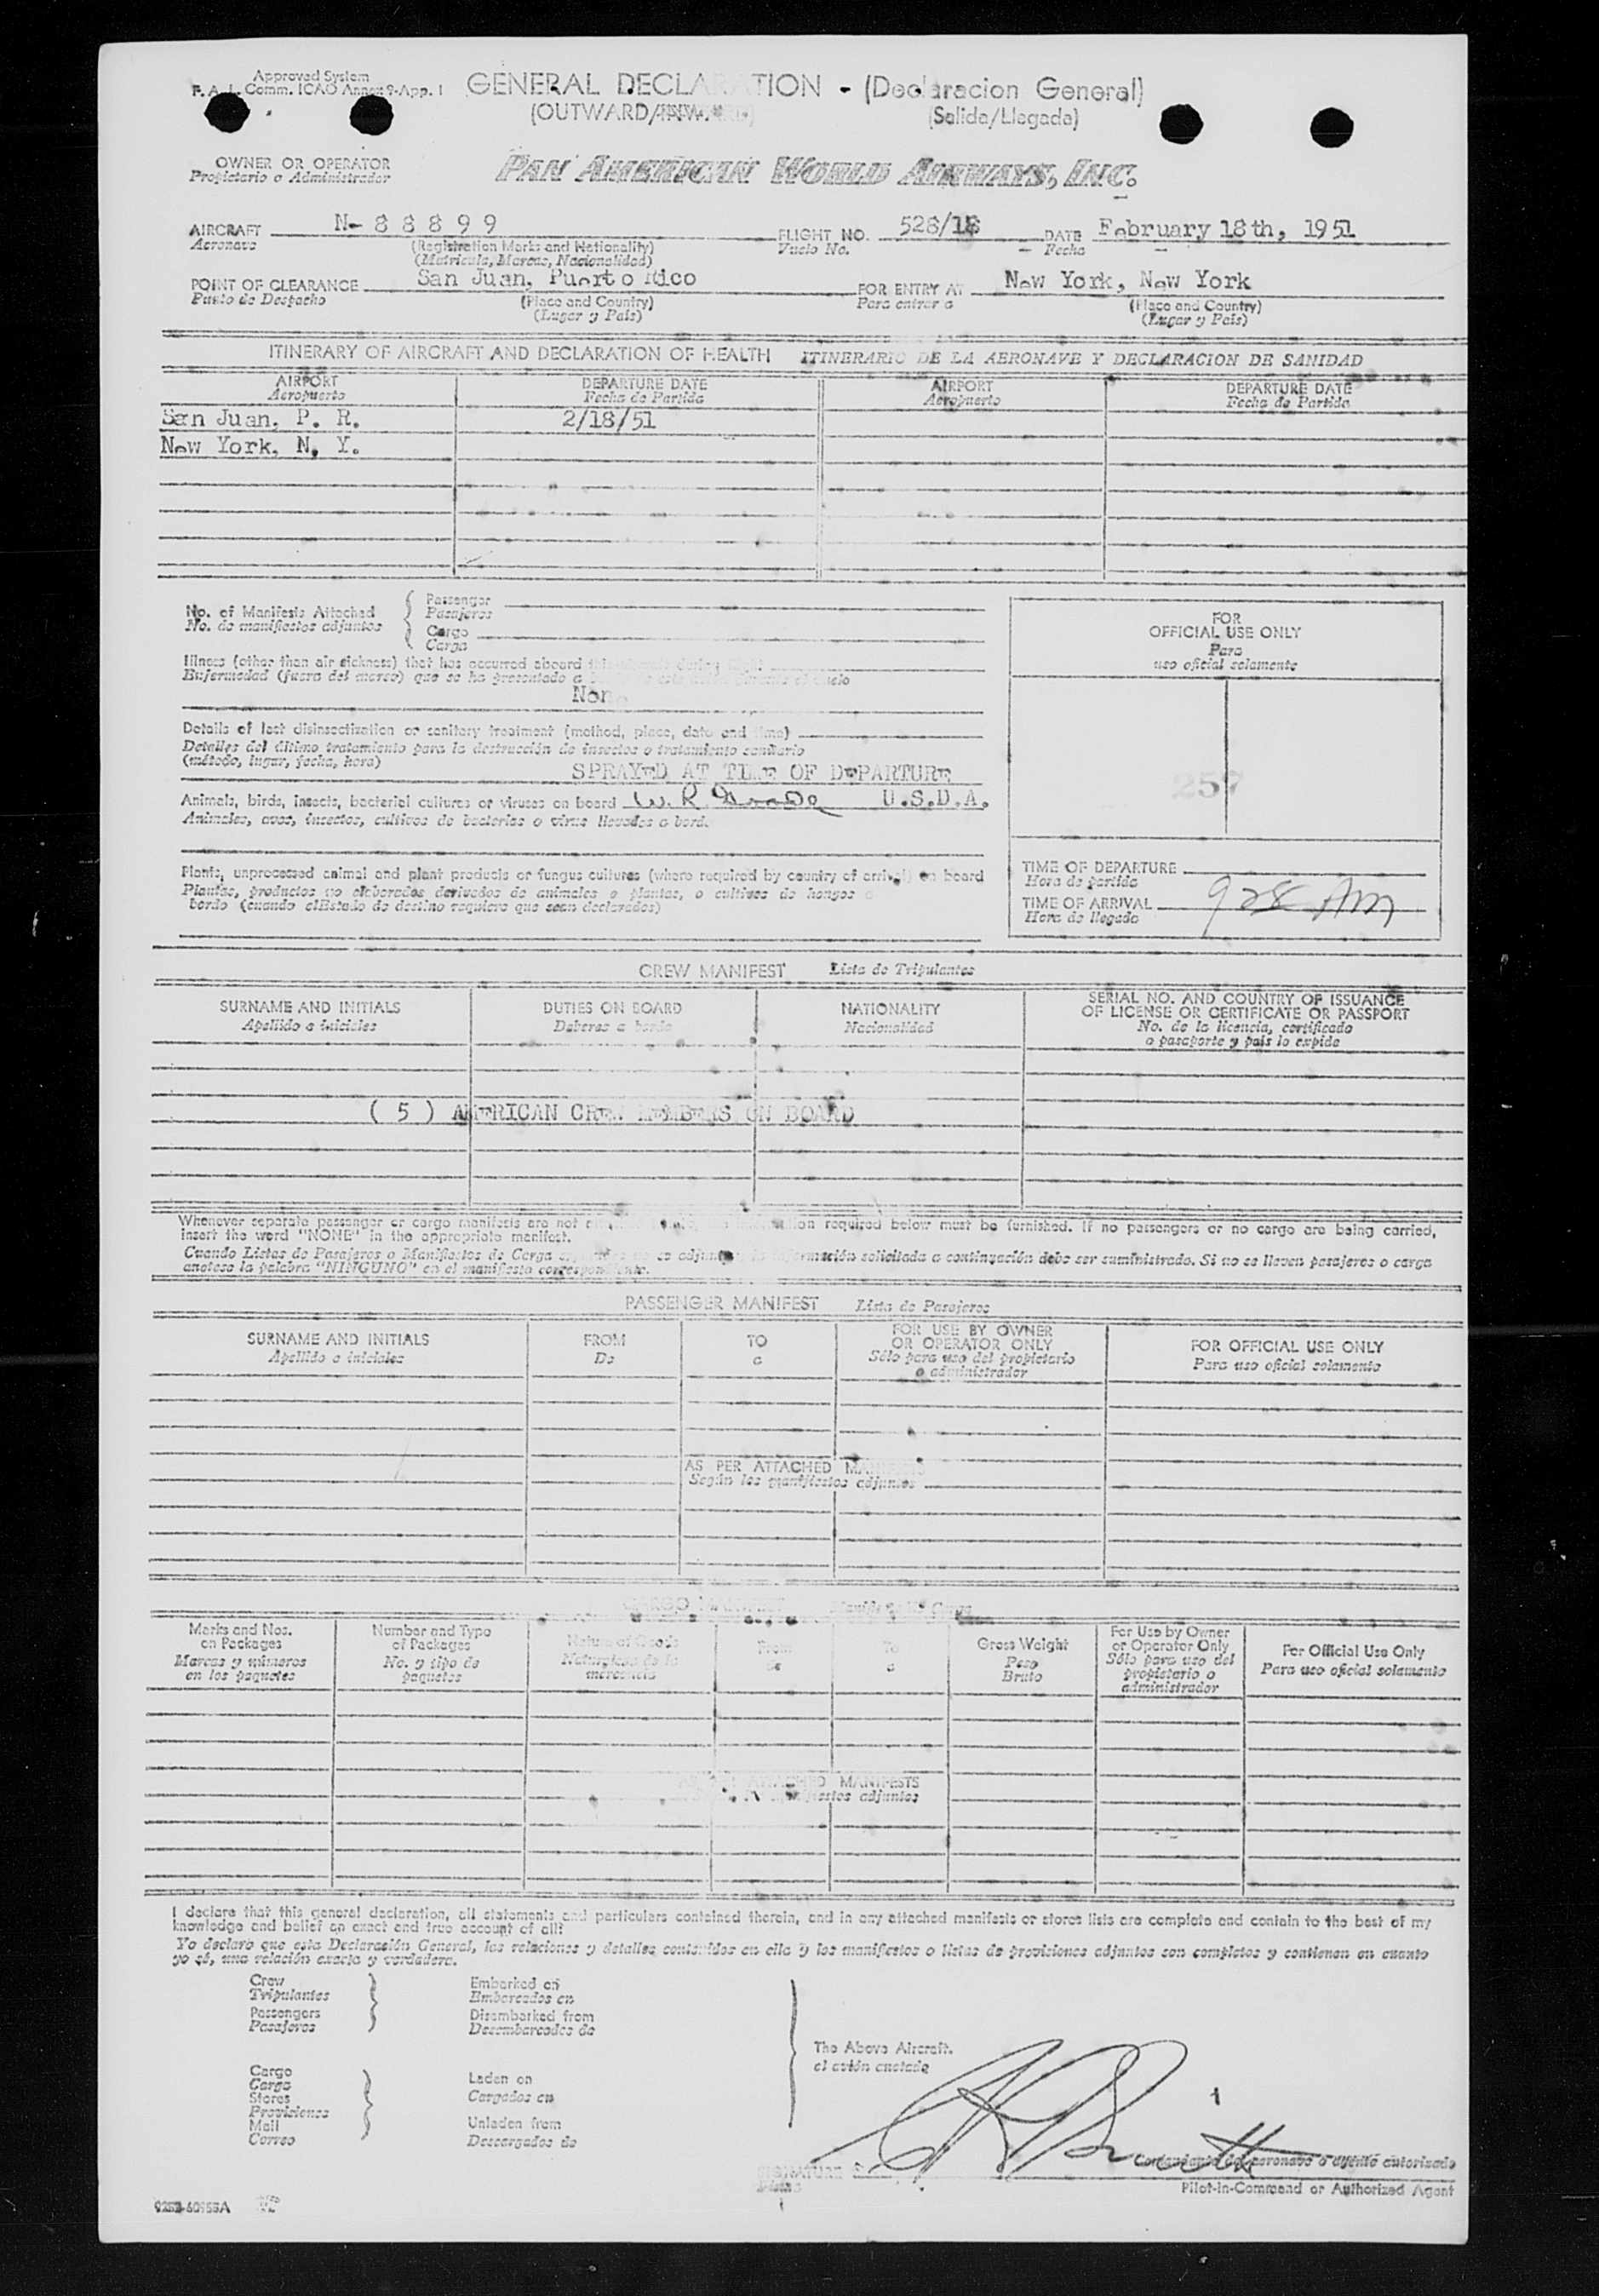 Approved System
F. A. L. Comm. ICAO Annex 9-App. 1
GENERAL DECLARATION - (Declaracion General)
(OUTWARD/ (Salida/Llegada)
OWNER OR OPERATOR
Propietario o Administrador
PAN AMERICAN WORLD AIRWAYS, INC.
AIRCRAFT N-88899 FLIGHT NO. 528/18 DATE February 18th, 1951
Aeronave (Registration Marks and Nationality) Vuelo No. Fecha
(Matricula, Marcas, Nacionalidad)
POINT OF CLEARANCE San Juan, Puerto Rico FOR ENTRY AT New York, New York
Punto de Despacho (Place and Country) Para entrar a (Place and Country)
(Lugar y Pais) (Lugar y Pais)
ITINERARY OF AIRCRAFT AND DECLARATION OF HEALTH ITINERARIO DE LA AERONAVE Y DECLARACION DE SANIDAD
AIRPORT DEPARTURE DATE AIRPORT DEPARTURE DATE
Aeropuerto Fecha de Partida Aeropuerto Fecha de Partida
San Juan, P. R. 2/18/51
New York, N. Y.
No. of Manifests Attached
No. de manifiestos adjuntos
Passenger
Pasajeros
Cargo
Carga
Illness (other than air sickness) that has occurred aboard this aircraft during flight
Enfermedad (fuera del mareo) que se ha presentado a
Non
Details of last disinsectization or sanitary treatment (method, place, date and time)
Detalles del último tratamiento para la destrucción de insectos o tratamiento sanitario
(método, lugar, fecha, hora)
SPRAYED AT TIME OF DEPARTURE
Animals, birds, insects, bacterial cultures or viruses on board W. R. U.S.D.A.
Animales, aves, insectos, cultivos de bacterias o virus llevados a bordo.
Plants, unprocessed animal and plant products or fungus cultures (where required by country of arrival) on board
Plantas, productos no elaborados derivados de animales o plantas, o cultivos de hongos a
bordo (cuando el Estado de destino requiera que sean declarados)
FOR
OFFICIAL USE ONLY
Para
uso oficial solamente
257
TIME OF DEPARTURE
Hora de partida
TIME OF ARRIVAL 928 AM
Hora de llegada
CREW MANIFEST Lista de Tripulantes
SURNAME AND INITIALS DUTIES ON BOARD NATIONALITY SERIAL NO. AND COUNTRY OF ISSUANCE
OF LICENSE OR CERTIFICATE OR PASSPORT
Apellido e iniciales Deberes a bordo Nacionalidad No. de la licencia, certificado
o pasaporte y país lo expide
( 5 ) AMERICAN CREW MEMBERS ON BOARD
Whenever separate passenger or cargo manifests are not required below must be furnished. If no passengers or no cargo are being carried,
insert the word "NONE" in the appropriate manifest.
Cuando Listas de Pasajeros o Manifiestos de Carga información solicitada a continuación debe ser suministrada. Si no se llevan pasajeros o carga
anotese la palabra "NINGUNO" en el manifiesto correspondiente.
PASSENGER MANIFEST Lista de Pasajeros
SURNAME AND INITIALS FROM TO FOR USE BY OWNER
OR OPERATOR ONLY FOR OFFICIAL USE ONLY
Apellido e iniciales De a Sólo para uso del propietario
o administrador Para uso oficial solamente
AS PER ATTACHED MANIFESTS
Según los manifiestos adjuntos
CARGO MANIFEST Manifiesto de Carga
Marks and Nos.
on Packages
Marcas y números
en los paquetes
Number and Type
of Packages
No. y tipo de
paquetes
Nature of Goods
Naturaleza de la
mercancia
From
De
To
a
Gross Weight
Peso
Bruto
For Use by Owner
or Operator Only
Sólo para uso del
propietario o
administrador
For Official Use Only
Para uso oficial solamente
ATTACHED MANIFESTS
manifiestos adjuntos
I declare that this general declaration, all statements and particulars contained therein, and in any attached manifests or stores lists are complete and contain to the best of my
knowledge and belief an exact and true account of all!
Yo declaro que esta Declaración General, las relaciones y detalles contenidos en ella y los manifiestos o listas de provisiones adjuntos son completos y contienen en cuanto
yo sé, una relación exacta y verdadera.
Crew
Tripulantes
Passengers
Pasajeros
Embarked on
Embarcados en
Disembarked from
Desembarcados de
Cargo
Carga
Stores
Provisiones
Mail
Correo
Laden on
Cargados en
Unladen from
Descargados de
The Above Aircraft.
el avión anotado
SIGNATURE
Firma
Comandante de aeronave o agente autorizado
Pilot-in-Command or Authorized Agent